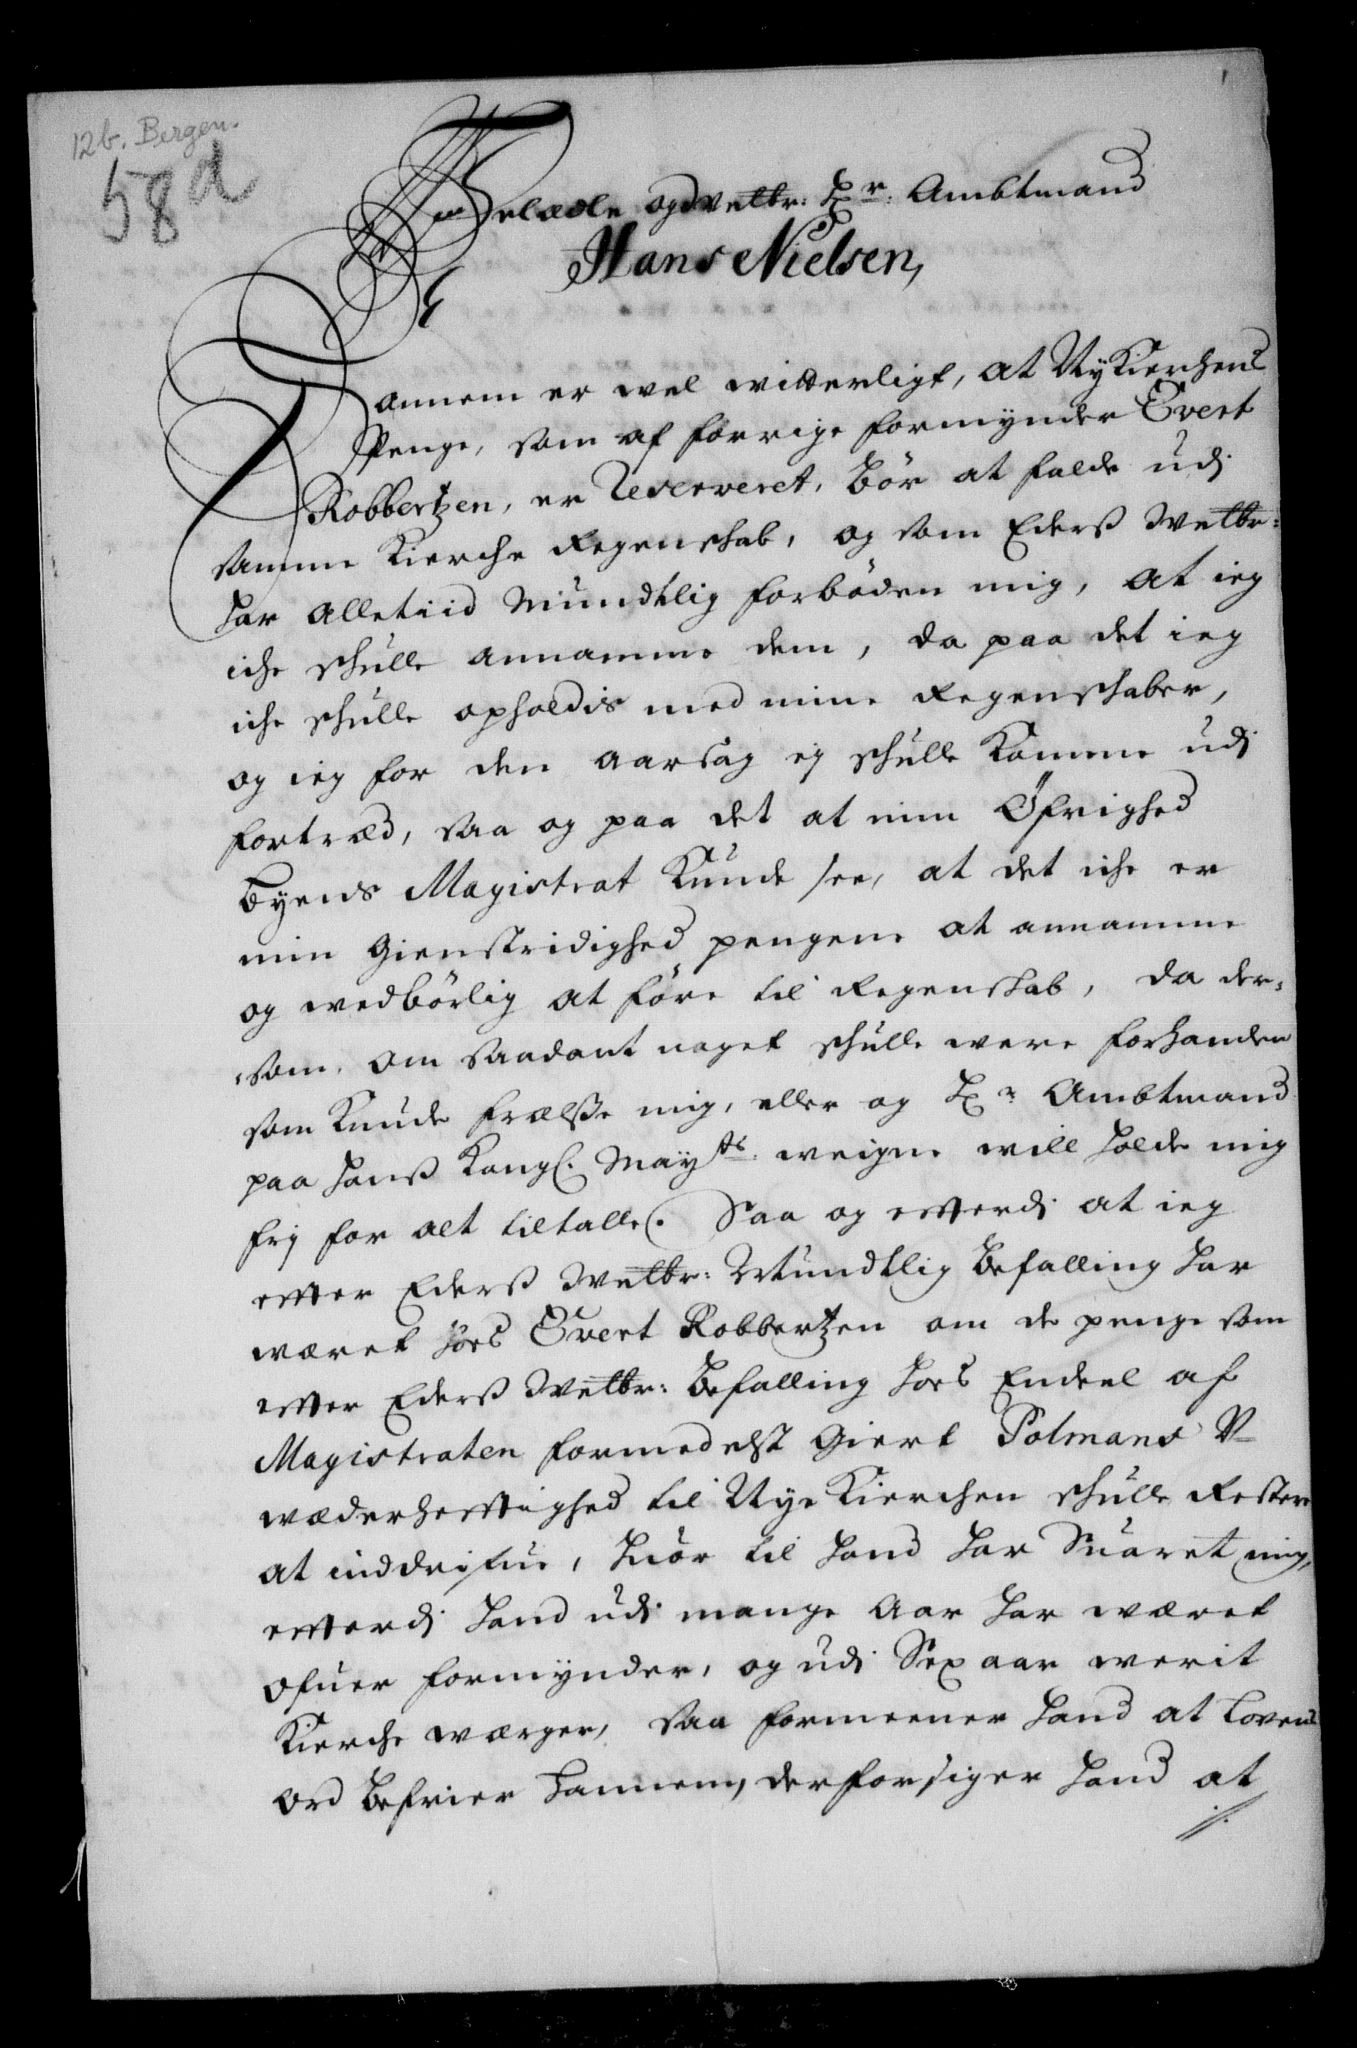 12b. Bergen.
58d
Velædle og Velbr: Hr: Ambtmand
Hans Nielsen,
Hannem er vel witterligt, at Ny Kierchens
Penge, som af forrige formynder Evert
Robbertzen, er Reserveret, bör at falde udj
samme Kierche Regenschab, og som Ederß Velbr:
har alletiid Mundtlig forböden mig, at ieg
iche schulle annamme dem, da paa det ieg
iche schulle opholdis med mine Regenschaber,
og ieg for den aarsag ej schulle komme udj
fortræd, saa og paa det at min Öfrighed
Byens Magistrat kunde see, at det iche er
min Gienstridighed pengene at annamme
og wedbörlig at före til Regenskab, da der-
som, om saadant noget schulle were forhanden
som kunde frælße mig, eller og Hr Ambtmand
paa Hanß Kongl. Mayts weigne will holde mig
frj for alt tiltalle. Saa og effterdj at ieg
effter Ederß Velbr: Mundtlig befalling har
wæret hoes Evert Robbertzen om de penge som
effter Ederß Velbr: befalling hoes Endeel af
Magistraten formedelst Giert Polmans V-
wæderhefftighed til Nye Kierchen schulle Restere
at inddrifue, huor til hand har Suaret mig,
effterdj hand udj mange Aar har wæret
ofuer formynder, og udj Sex aar werit
Kierche wærger, saa formeener hand at Lovens
ord befrier hannem, derfor siger hand at
//.